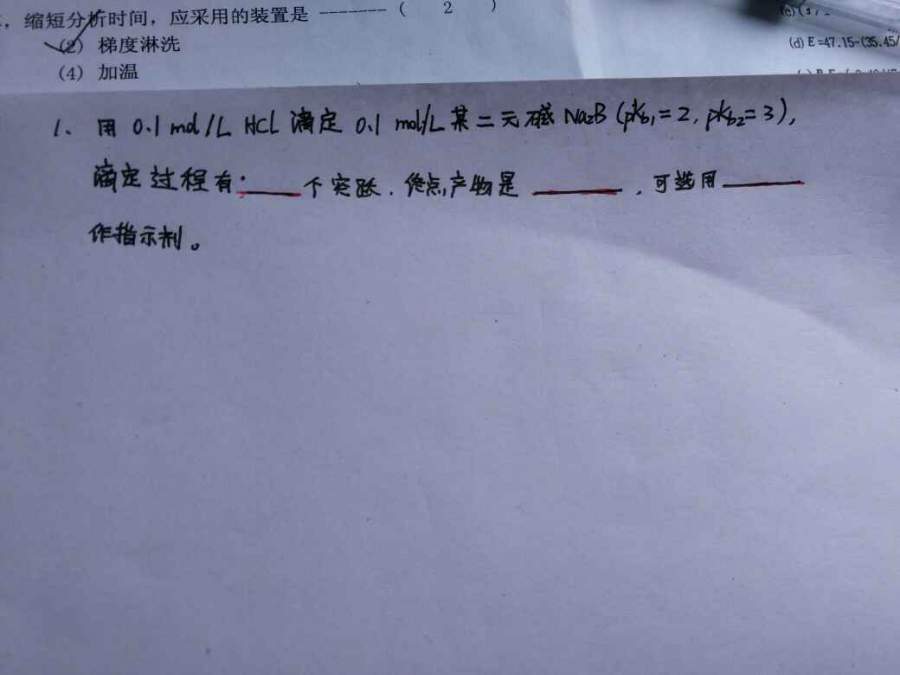 ，缩短分析时间，应采用的装置是 ------- （ 2 ）
(2) 梯度淋洗
(4) 加温
(d) E=47.15-(35.45/
1、用 0.1 mol/L HCl 滴定 0.1 mol/L 某二元碱 Na₂B (pKb₁=2, pKb₂=3),
滴定过程有:____个突跃．终点产物是 ______，可选用______
作指示剂。